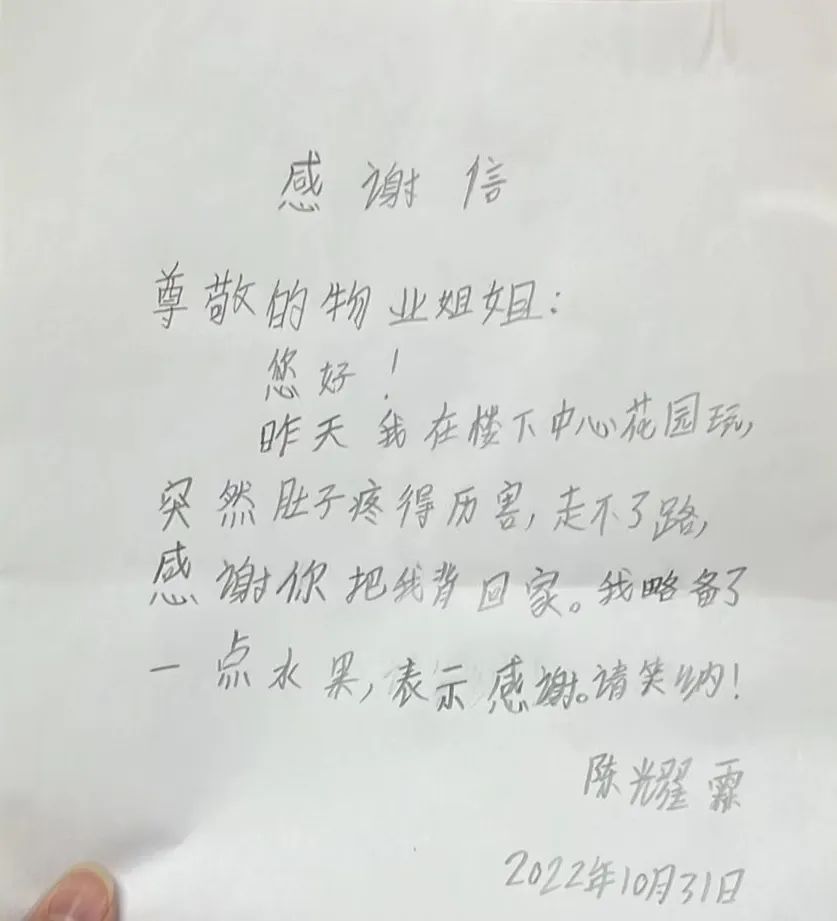 感谢信
尊敬的物业姐姐：
您好！
昨天我在楼下中心花园玩，
突然肚子疼得厉害，走不了路，
感谢你把我背回家。我略备了
一点水果，表示感谢。请笑纳！
陈耀霖
2022年10月31日